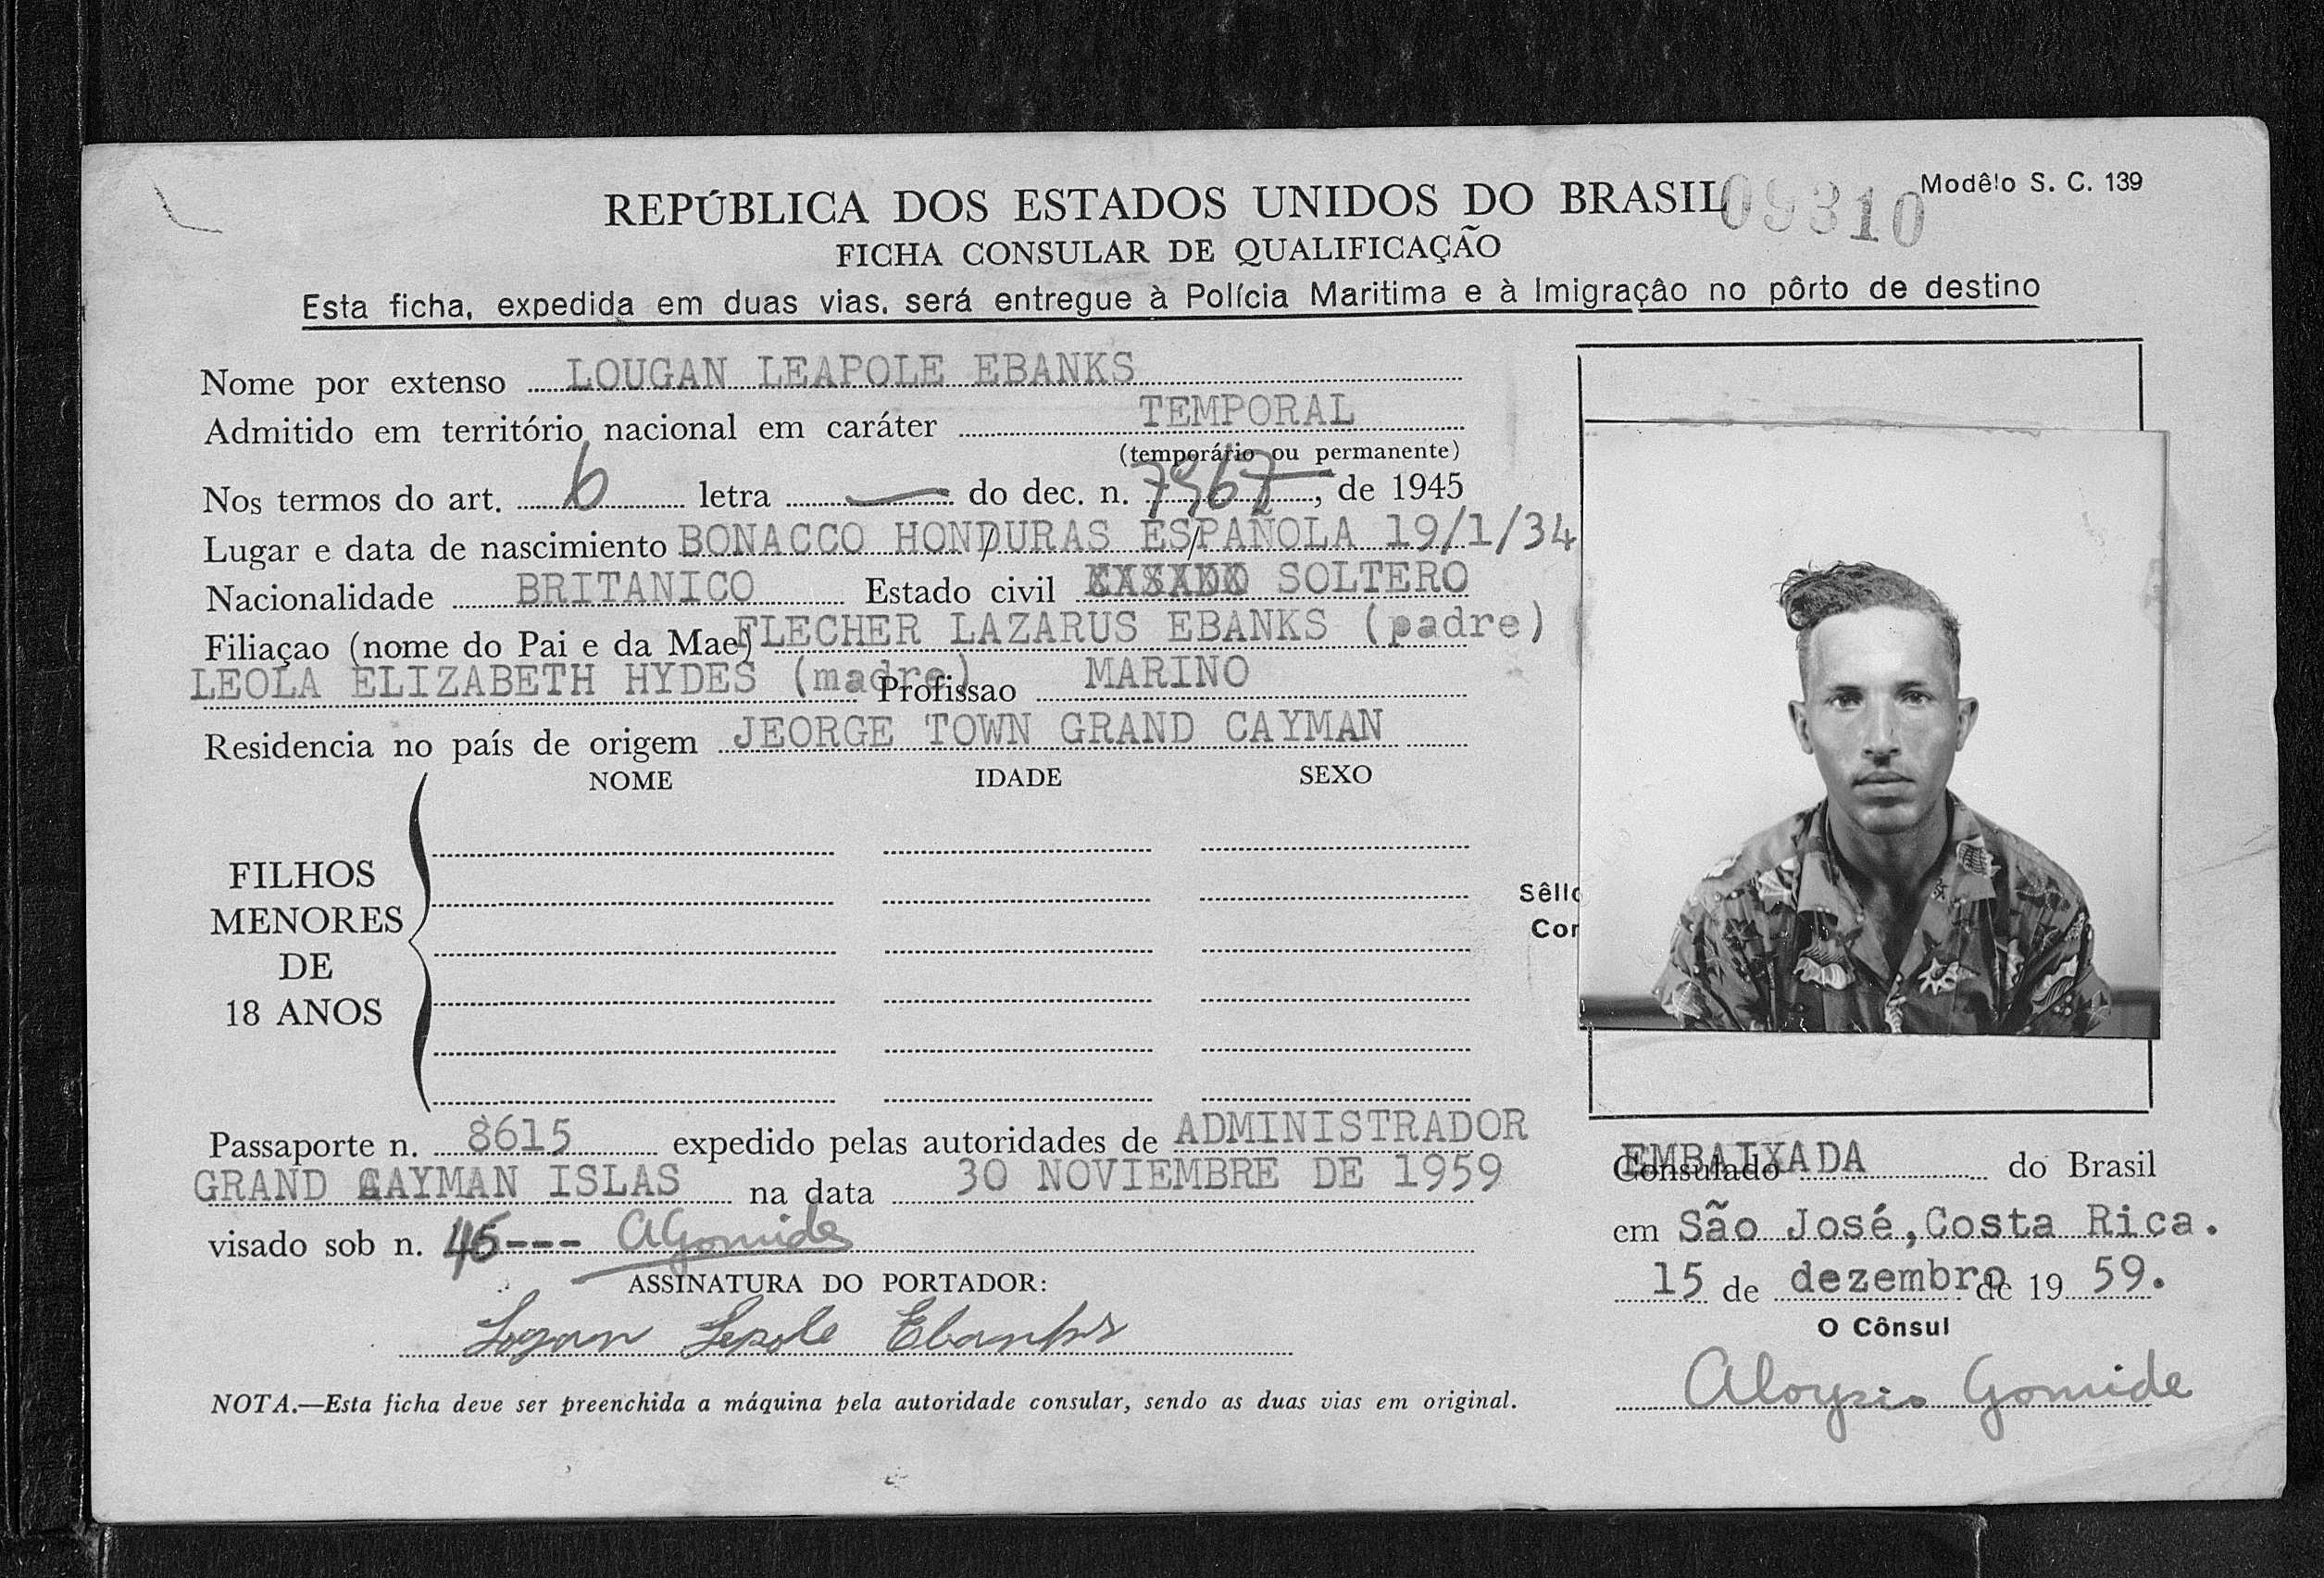 REPÚBLICA DOS ESTADOS UNIDOS DO BRASIL 09310 Modêlo S. C. 139
FICHA CONSULAR DE QUALIFICAÇÃO
Esta ficha, expedida em duas vias, será entregue à Polícia Maritima e à Imigração no pôrto de destino
Nome por extenso LOUGAN LEAPOLE EBANKS
Admitido em território nacional em caráter TEMPORAL
(temporário ou permanente)
Nos termos do art. 6 letra — do dec. n. 7967, de 1945
Lugar e data de nascimiento BONACCO HONDURAS ESPAÑOLA 19/1/34
Nacionalidade BRITANICO Estado civil SOLTERO
Filiaçao (nome do Pai e da Mae) FLECHER LAZARUS EBANKS (padre)
LEOLA ELIZABETH HYDES (madre) Profissao MARINO
Residencia no país de origem JEORGE TOWN GRAND CAYMAN
NOME IDADE SEXO
FILHOS
MENORES
DE
18 ANOS
Sêllo
Con
Passaporte n. 8615 expedido pelas autoridades de ADMINISTRADOR
GRAND CAYMAN ISLAS na data 30 NOVIEMBRE DE 1959
visado sob n. 45--- AGomide
ASSINATURA DO PORTADOR:
Logan Lepole Ebanks
NOTA.—Esta ficha deve ser preenchida a máquina pela autoridade consular, sendo as duas vias em original.
Consulado EMBAIXADA do Brasil
em São José, Costa Rica.
15 de dezembro de 19 59.
O Cônsul
Aloysio Gomide